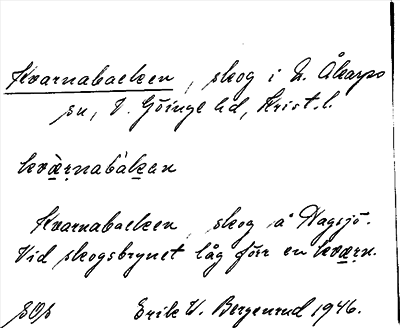 Kvarnabacken, skog i N. Åkarps
sn, V. Göinge hd, Krist. l.
kvàrnabákan
Kvarnabacken, skog å Vagsjö.
Vid skogsbrynet låg förr en kvarn.
Erik W. Bergenrud 1946.